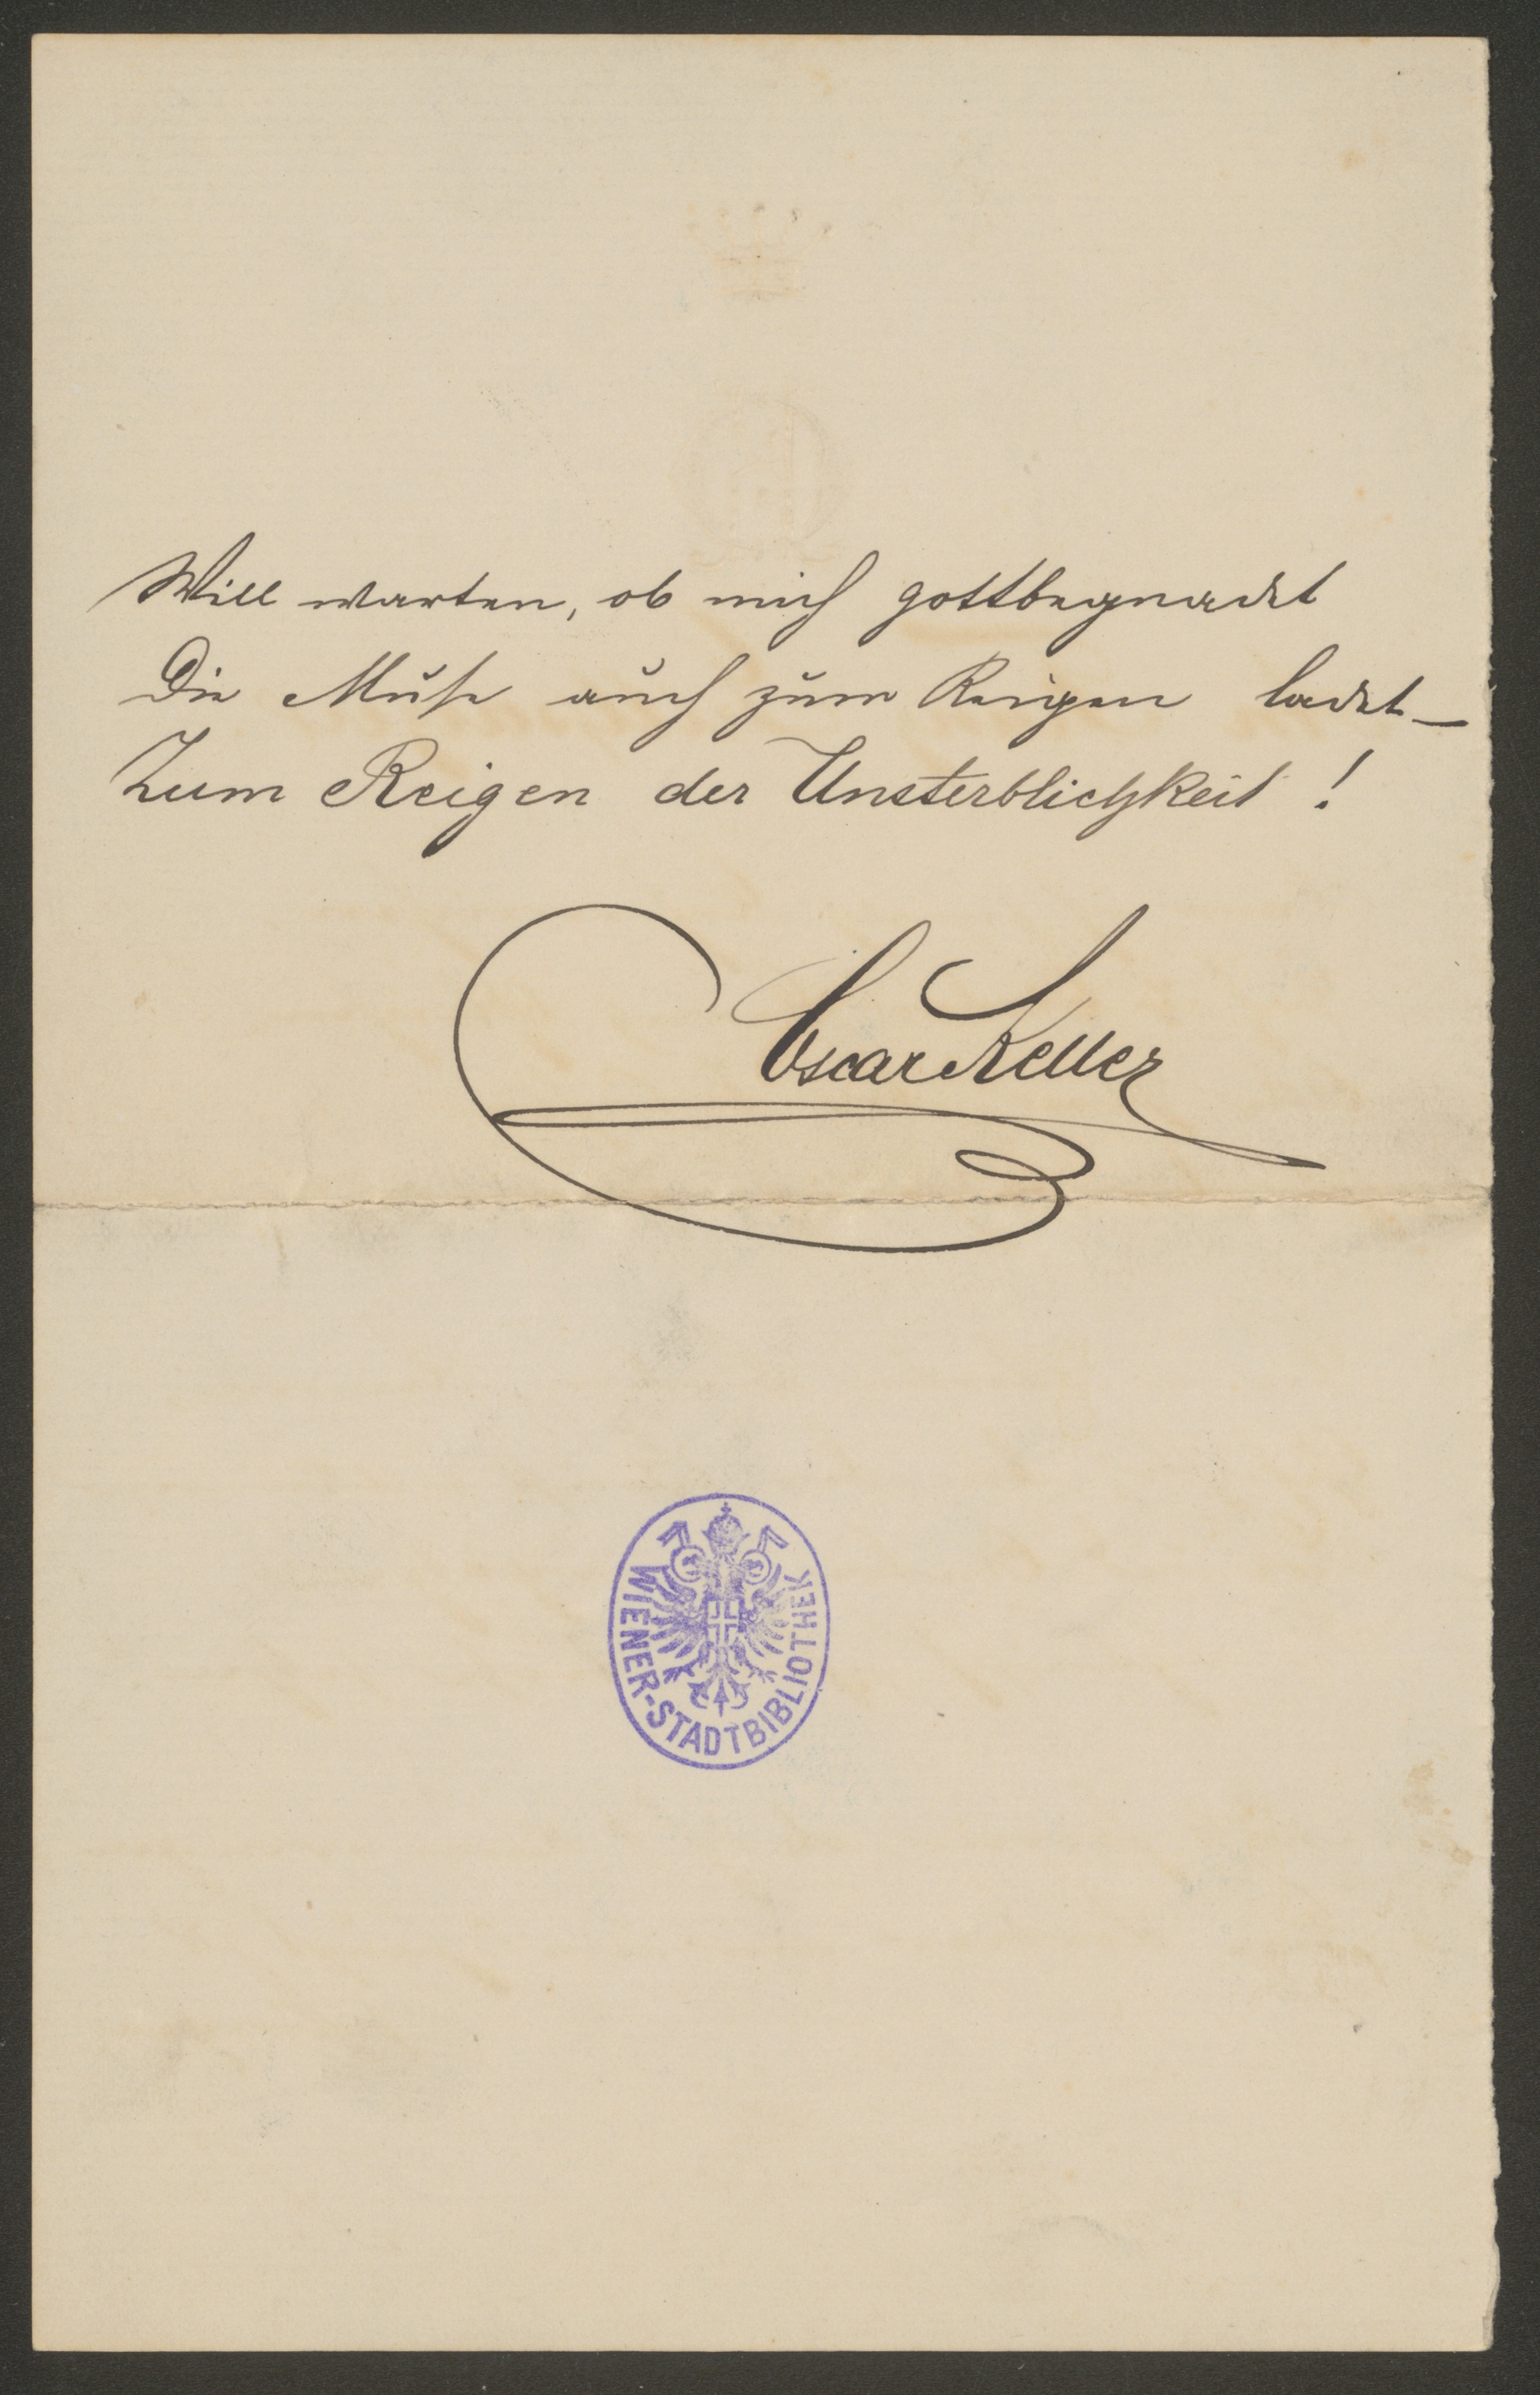 Will warten, ob mich gottbegnadet
Die Muse auch zum Reigen ladet –
Zum Reigen der Unsterblichkeit!
Oscar Keller
WIENER-STADTBIBLIOTHEK